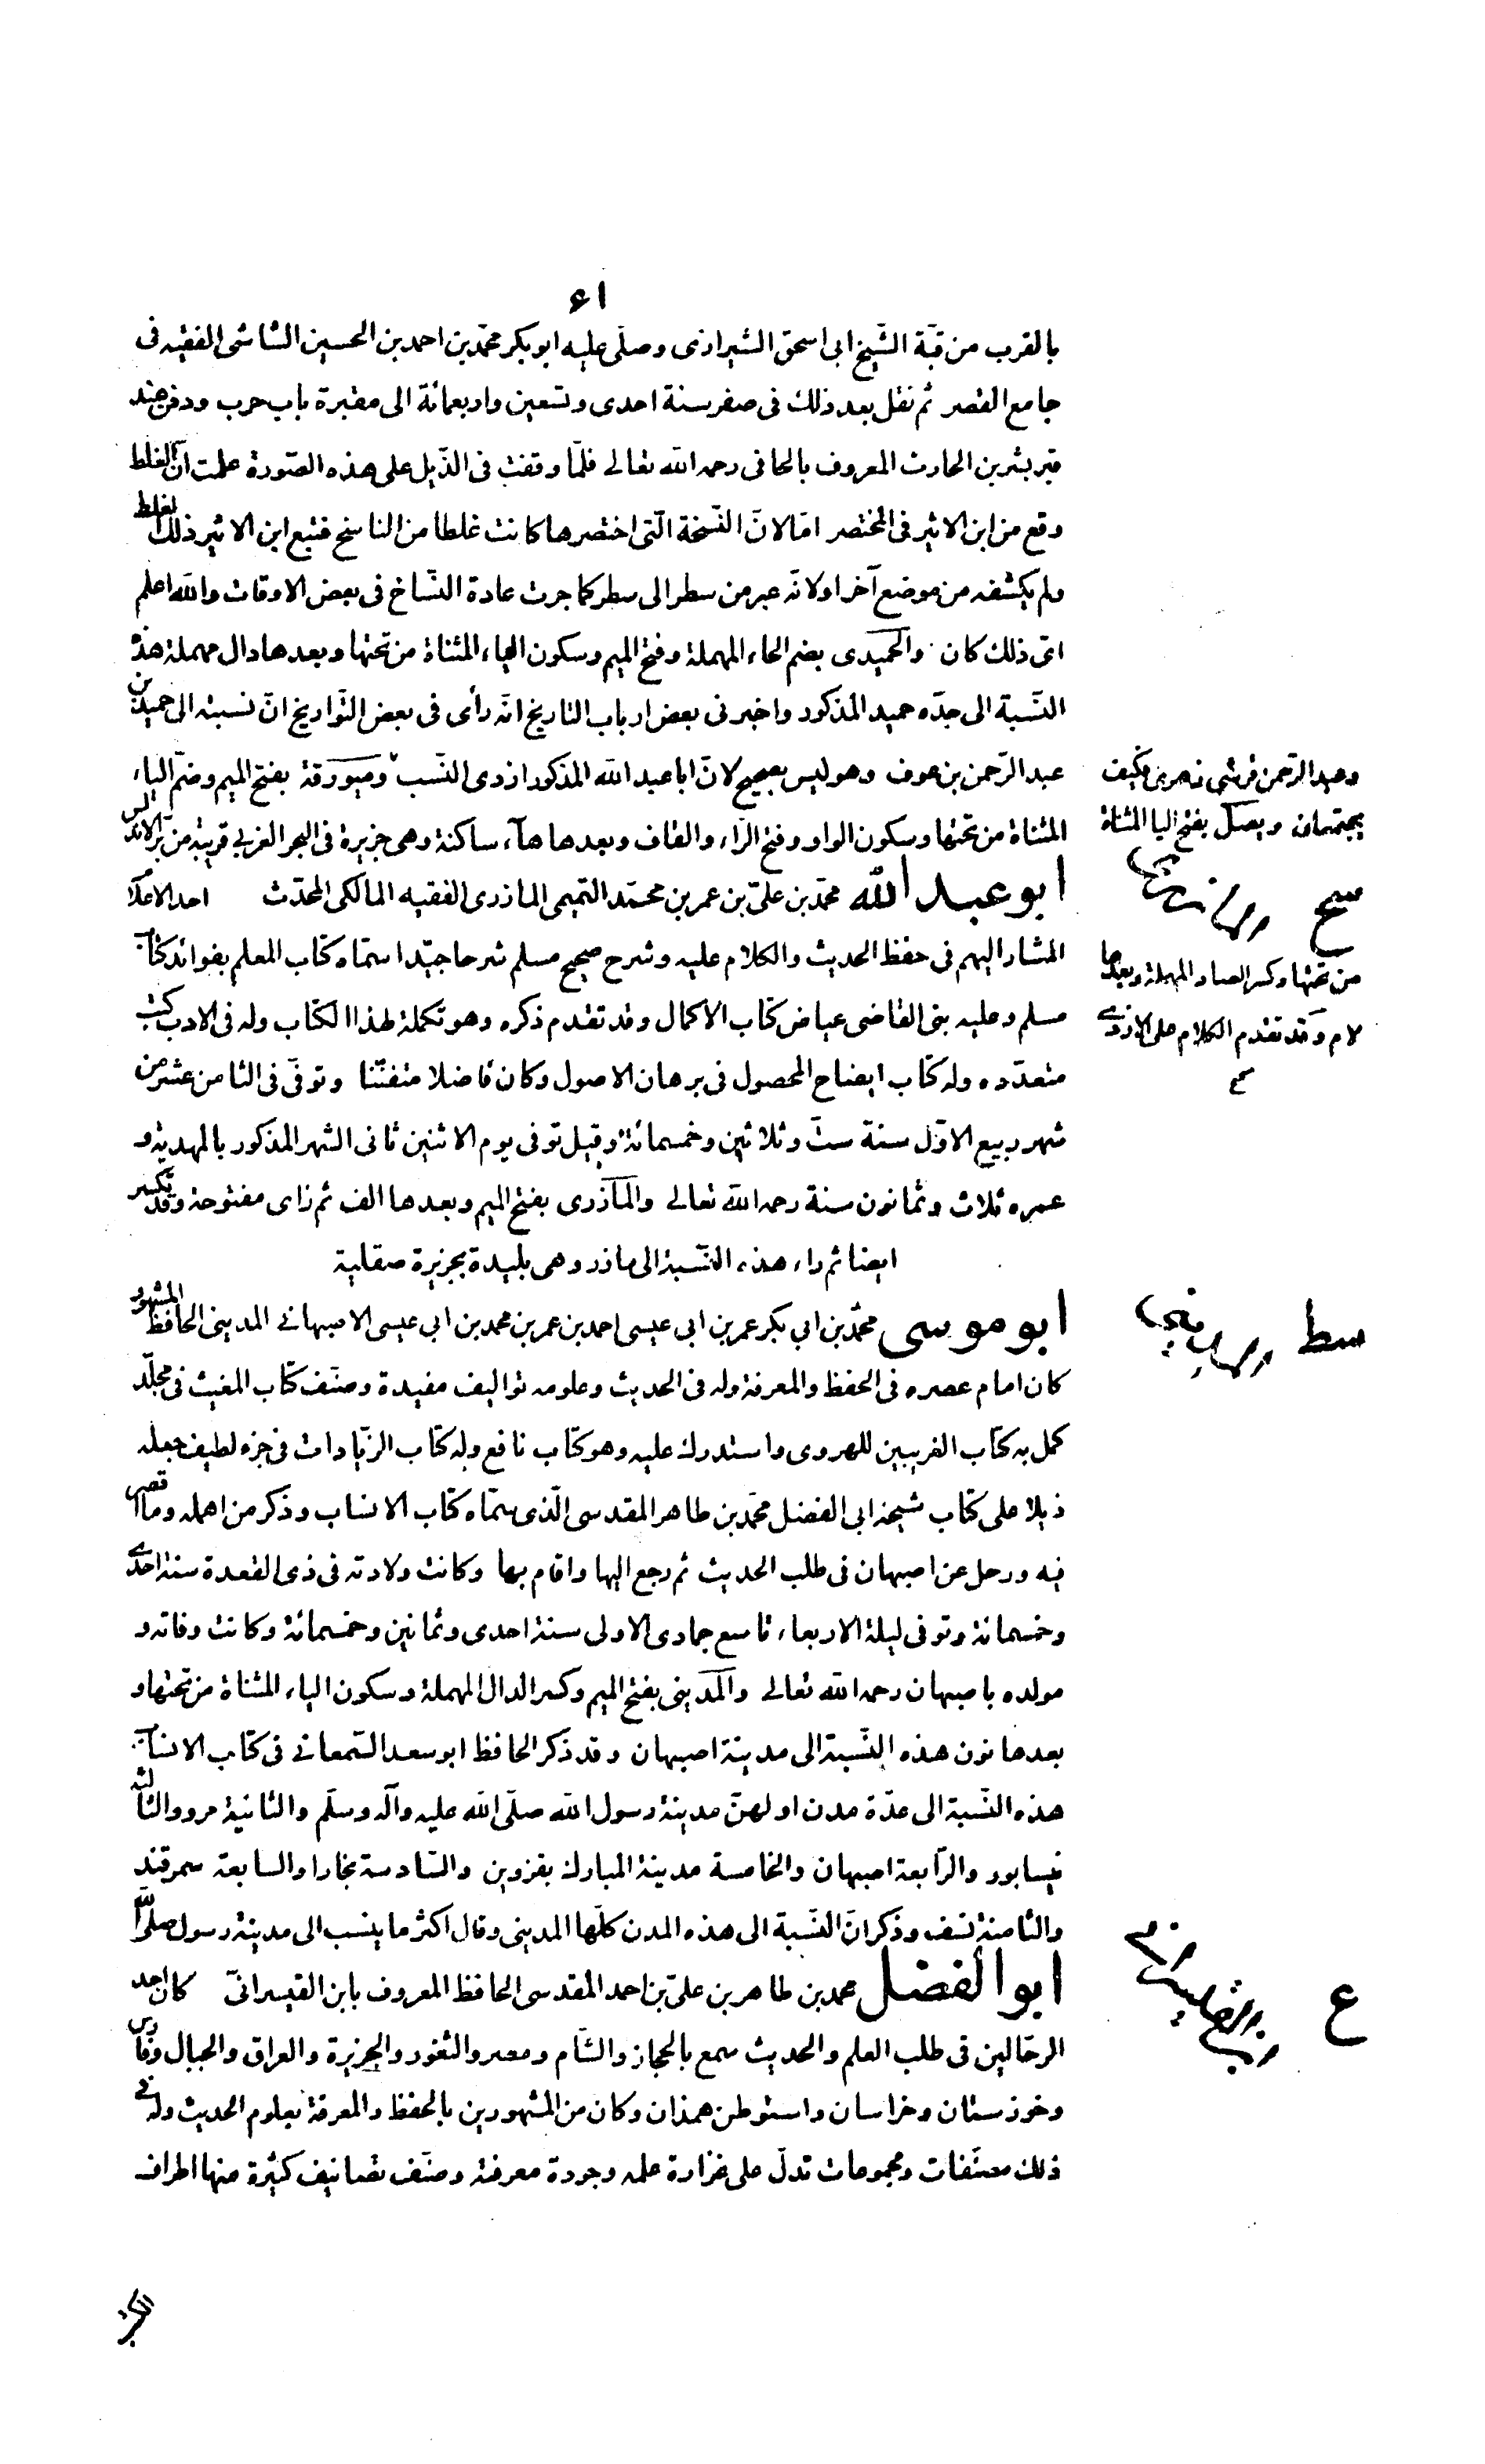 ٦١
بالقرب من قبّة الشّيخ ابى اسحق الشيرازى وصلّى عليه ابو بكر محمّد بن احمد بن الحسين الشاشى الفقيه فى
جامع القصر ثم نقل بعد ذلك فى صفر سنة احدى وتسعين واربعمائة الى مقبرة باب حرب ودفن عند
قبر بشر بن الحارث المعروف بالحافى رحمه الله تعالى فلمّا وقفت فى الذّيل على هذه الصّورة علمت انّ الغلط
وقع من ابن الاثير فى المختصر امّا لانّ النّسخة الّتى اختصرها كانت غلطا من الناسخ فتبع ابن الاثير ذلك الغلط
ولم يكشفه من موضع آخر او لانّه عبر من سطر الى سطر كما جرت عادة النّساخ فى بعض الاوقات والله اعلم
اىّ ذلك كان والحميدى بضم الحاء المهملة وفتح الميم وسكون الياء المثناة من تحتها وبعدها دال مهملة هذه
النّسبة الى جدّه حميد المذكور واخبرنى بعض ارباب التاريخ انّه رأى فى بعض التّواريخ انّ نسبته الى حميد بن
عبد الرّحمن بن عوف وهو ليس بصحيح لانّ ابا عبد الله المذكور ازدى النّسب وميورقة بفتح الميم وضمّ الياء
وعبد الرّحمن قرشى زهرى فكيف
يجتمعان ويصل بفتح اليا المثناة
المثناة من تحتها وسكون الواو وفتح الرّاء والقاف وبعدها هآء ساكنة وهى جزيرة فى البحر الغربى قريبة من برّ الاندلس
سح
ابو عبد الله محمّد بن علىّ بن عمر بن محمّد التميمى المازرى الفقيه المالكى المحدّث احد الاعلام
المشار اليهم فى حفظ الحديث والكلام عليه وشرح صحيح مسلم شرحا جيّدا سمّاه كتاب المعلم بفوائد كتاب
من تحتها وكسر الصاد المهملة وبعدها
مسلم وعليه بنى القاضى عياض كتاب الاكمال وقد تقدم ذكره وهو تكملة لهذا الكتاب وله فى الادب كتب
لام وقد تقدم الكلام على الازدى
متعدّده وله كتاب ايضاح المحصول فى برهان الاصول وكان فاضلا متفنّنا وتوفّى فى الثامن عشر من
شهر ربيع الاوّل سنة ستّ وثلاثين وخمسمائة وقيل توفى يوم الاثنين ثانى الشهر المذكور بالمهدية و
عمره ثلاث وثمانون سنة رحمه الله تعالى والمآزرى بفتح الميم وبعدها الف ثم زاى مفتوحة وقد تكسر
ايضا ثم راء هذه النّسبة الى مازر وهى بليدة بجزيرة صقلية
سط
ابو موسى محمّد بن ابى بكر عمر بن ابى عيسى احمد بن عمر بن محمد بن ابى عيسى الاصبهانى المدينى الحافظ المشهور
كان امام عصره فى الحفظ والمعرفة وله فى الحديث وعلومه تواليف مفيدة وصنّف كتاب المغيث فى مجلّد
كمل به كتاب الغريبين للهروى واستدرك عليه وهو كتاب نافع وله كتاب الزّيادات فى جزء لطيف جعله
ذيلا على كتاب شيخه ابى الفضل محمّد بن طاهر المقدسى الّذى سمّاه كتاب الانساب وذكر من اهمله وما اقصر
فيه ورحل عن اصبهان فى طلب الحديث ثم رجع اليها واقام بها وكانت ولادته فى ذى القعدة سنة احدى
وخمسمائة وتوفى ليلة الاربعاء تاسع جمادى الاولى سنة احدى وثمانين وخمسمائة وكانت وفاته و
مولده باصبهان رحمه الله تعالى والمدينى بفتح الميم وكسر الدال المهملة وسكون الياء المثناة من تحتها و
بعدها نون هذه النّسبة الى مدينة اصبهان وقد ذكر الحافظ ابو سعد السّمعانى فى كتاب الانساب
هذه النّسبة الى عدّة مدن اولهنّ مدينة رسول الله صلّى الله عليه وآله وسلّم والثانية مرو والثالثة
نيسابور والرّابعة اصبهان والخامسة مدينة المبارك بقزوين والسّادسة بخارا والسابعة سمرقند
والثامنة نسف وذكر انّ النّسبة الى هذه المدن كلّها المدينى وقال اكثر ما ينسب الى مدينة رسول صلى الله
ع
ابو الفضل محمد بن طاهر بن علىّ بن احمد المقدسى الحافظ المعروف بابن القيسرانىّ كان احد
الرحّالين فى طلب العلم والحديث سمع بالحجاز والشّام ومصر والثغور والجزيرة والعراق والجبال وفارس
وخوزستان وخراسان واستوطن همذان وكان من المشهورين بالحفظ والمعرفة بعلوم الحديث وله فى
ذلك مصنّفات ومجموعات تدلّ على غزارة علمه وجودة معرفته وصنّف تصانيف كثيرة منها اطراف